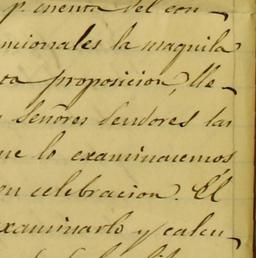 p. cuenta del con-
ncionales la maquila
ta proposicion, lle-
Señores deudores las
ue lo examinaremos
en celebracion. El
xaminarlo y calcu-